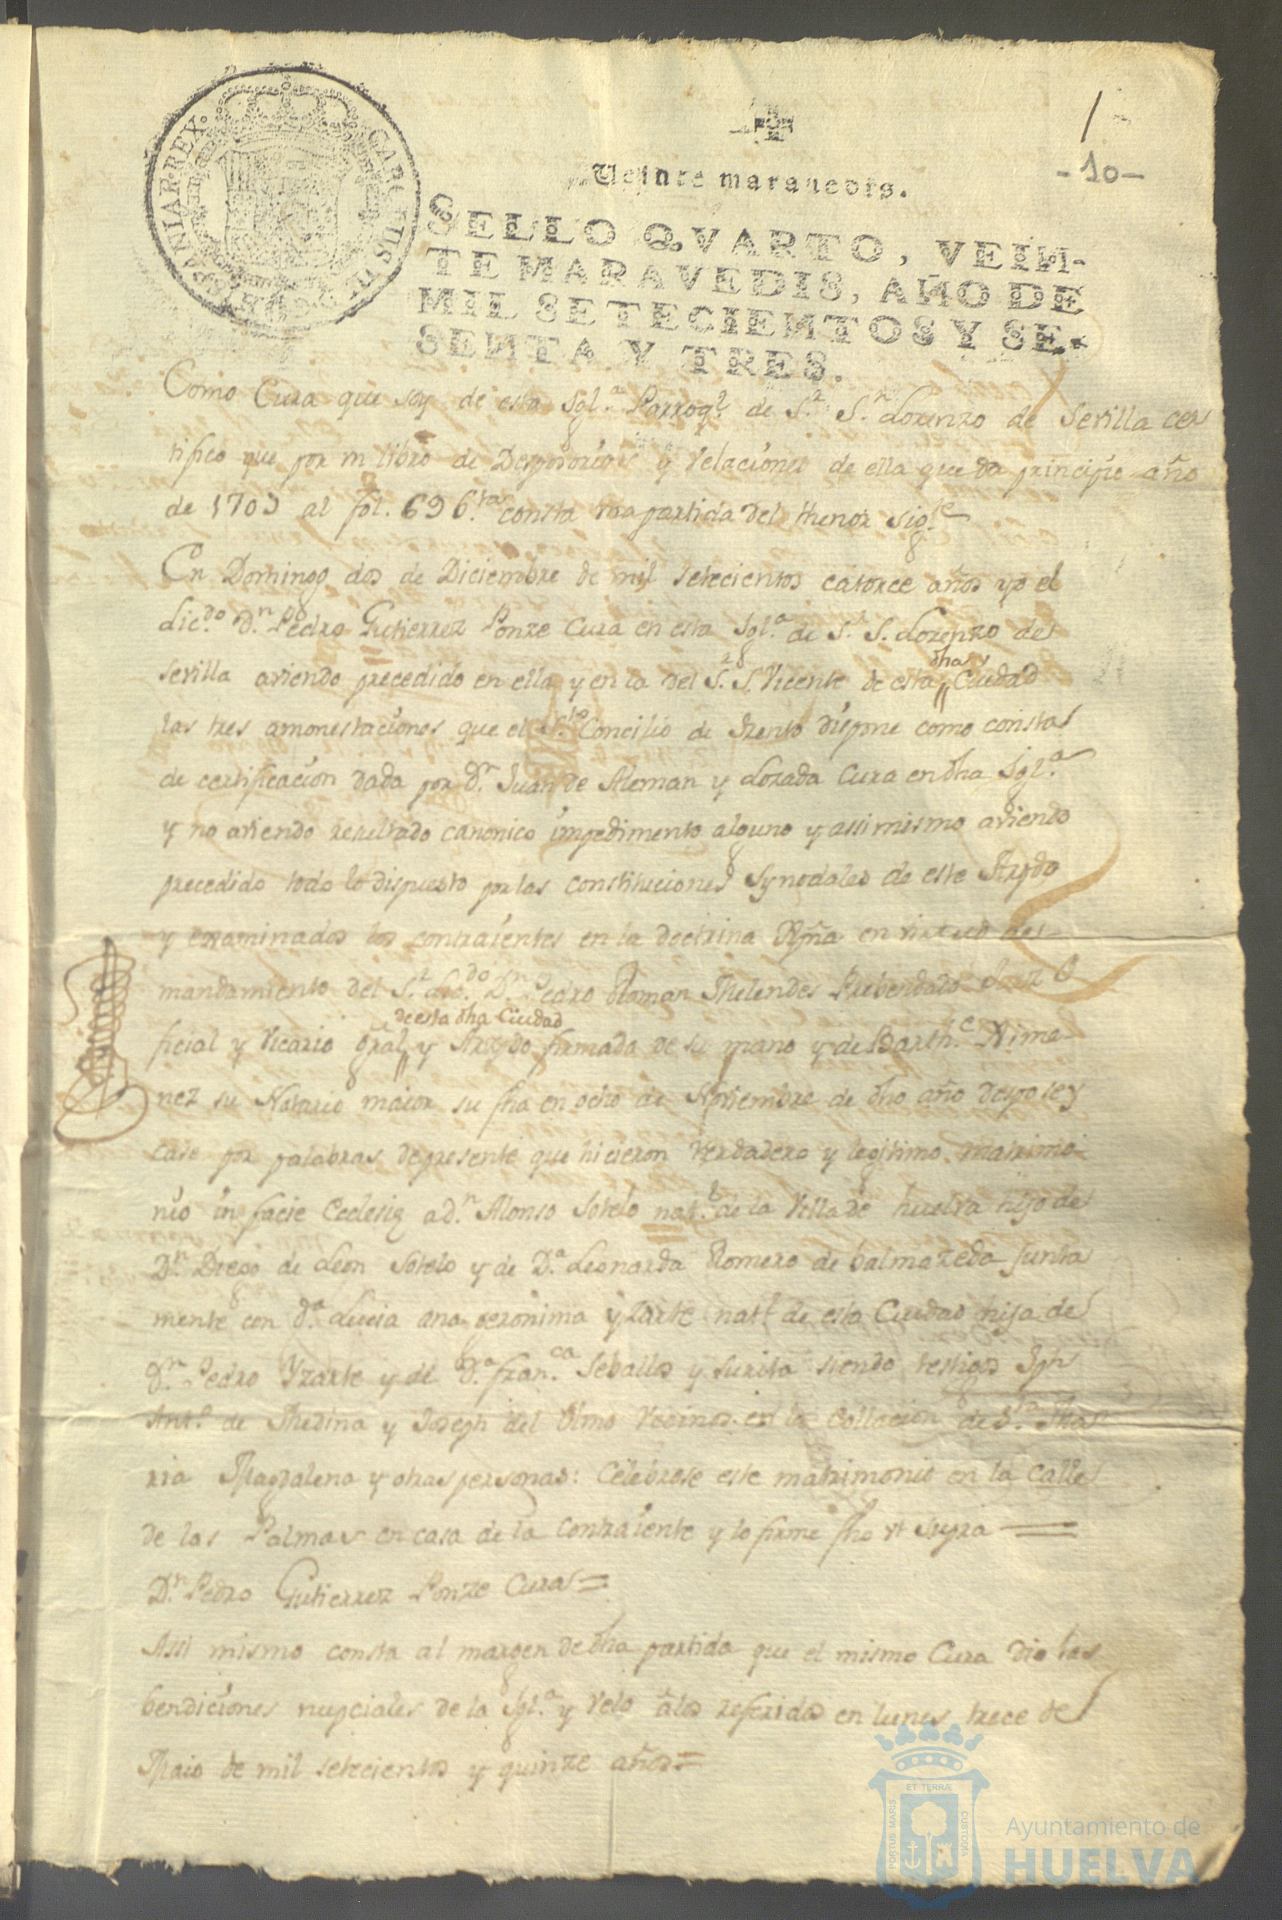 CAROLUS III D G HISPANIAR·REX·
1
-10-
Veinte maravedis.
SELLO QVARTO, VEIN-
TE MARAVEDIS, AÑO DE
MIL SETECIENTOS Y SE-
SENTA Y TRES.
Como Cura que soy de esta Igl.ª Parroq.l de S.r S.n Lorenzo de Sevilla cer
tifico que por un libro de Desposorios y Velaciones de ella que da principio año
de 1709 al fol. 696 consta una partida del thenor sig.te
En Domingo dos de Diciembre de mil setecientos catorce años yo el
Lic.do D.n Pedro Gutierrez Ponze Cura en esta Igl.ª de S.r S. Lorenzo de
Sevilla aviendo precedido en ella y en la del S.r S. Vicente de esta dha Ciudad
las tres amonestaciones que el S.to Concilio de Trento dispone como consta
de certificacion dada por D.n Juan de Aleman y Lozada Cura en dha Igl.ª
y no aviendo resultado canonico impedimento alguno y assimismo aviendo
precedido todo lo dispuesto por las constituciones Synodales de este Arzpdo
y examinados los contraientes en la doctrina Xpña en virtud de
mandamiento del S.r Lic.do D.n Pedro Roman Melendes Prebendado Juez O
ficial y Vicario Gral de esta dha Ciudad y Arzpdo firmada de su mano y de Barth.e Xime
nez su Notario maior su fha en ocho de Noviembre de dho año despose y
case por palabras de presente que hicieron verdadero y legitimo matrimo-
nio in facie Eclesiæ a d.n Alonso Sotelo nat.l de la Villa de huelva hijo de
D.n Diego de Leon Sotelo y de D.ª Leonarda Romero de balmazeda junta
mente con d.ª Lucia ana geronima yzarte nat.l de esta Ciudad hija de
D.n Pedro Yzarte y de D.ª fran.ca Seballos y surita siendo testigos Jph
Ant.o de Medina y Joseph del Olmo Vecinos en la Collacion de S.ta Ma
ria Magdalena y otras personas: Celebrose este matrimonio en la calle
de las Palmas en casa de la contraiente y lo firme fho vt supra
D.n Pedro Gutierrez Ponze Cura=
Assi mismo consta al margen de dha partida que el mismo Cura dio las
bendiciones nupciales de la Igl.ª y velo a los referidos en lunes trece de
Maio de mil setecientos y quinze años=
PORTUS MARIS
ET TERRÆ
CUSTODIA
Ayuntamiento de
HUELVA